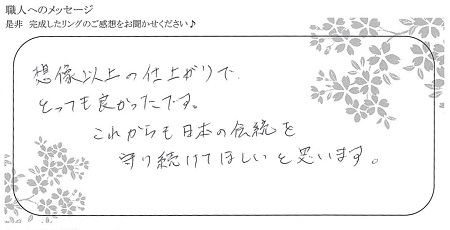 職人へのメッセージ
是非 完成したリングのご感想をお聞かせください♪
想像以上の仕上がりで、
とっても良かったです。
これからも日本の伝統を
守り続けてほしいと思います。